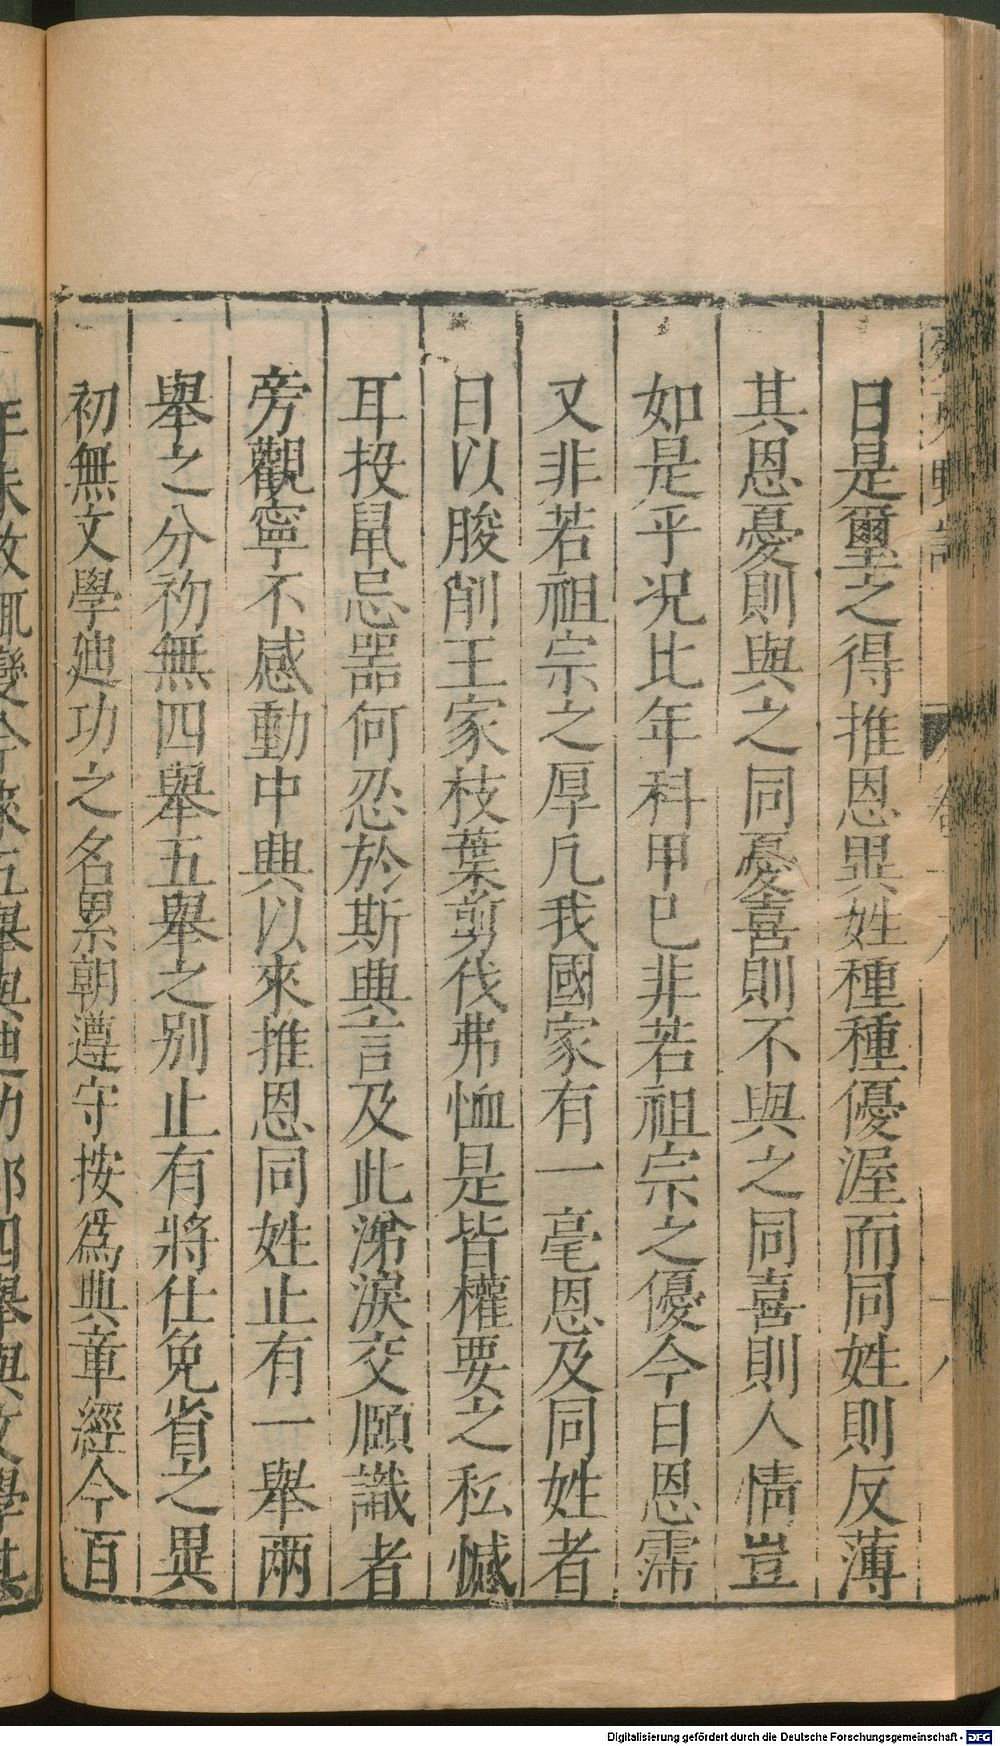 日是璽之得推恩異姓種種優渥而同姓則反薄
其恩憂則與之同憂喜則不與之同喜則人情豈
如是乎况比年科甲巳非若祖宗之優今日恩霈
又非若祖宗之厚凢我國家有一毫恩及同姓者
日以朘削王家枝葉剪伐弗恤是皆權要之私憾
耳投鼠忌噐何忍於斯興言及此涕淚交頤識者
旁觀寧不感動中興以來推恩同姓止有一舉兩
舉之分初無四舉五舉之别止有將仕免省之異
初無文學廸功之名累朝遵守按為典章經今百
Digitalisierung gefördert durch die Deutsche Forschungsgemeinschaft - DFG